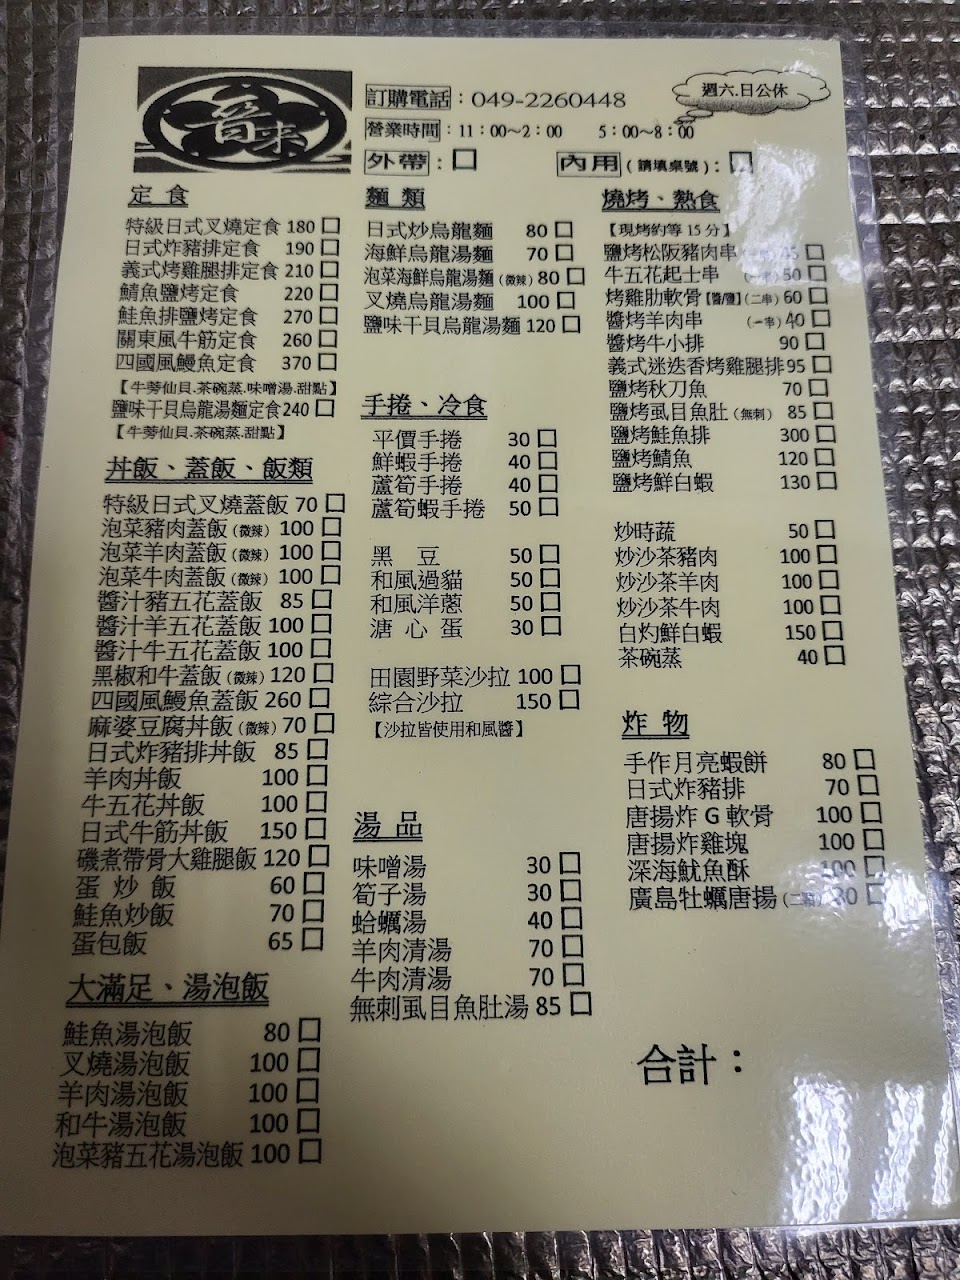 訂購電話：049-2260448
週六.日公休
營業時間：11：00～2：00 5：00～8：00
外帶：□ 內用(請填桌號)：□
定食
特級日式叉燒定食 180 □
日式炸豬排定食 190 □
義式烤雞腿排定食 210 □
鯖魚鹽烤定食 220 □
鮭魚排鹽烤定食 270 □
關東風牛筋定食 260 □
四國風鰻魚定食 370 □
【牛蒡仙貝.茶碗蒸.味噌湯.甜點】
鹽味干貝烏龍湯麵定食240 □
【牛蒡仙貝.茶碗蒸.甜點】
丼飯、蓋飯、飯類
特級日式叉燒蓋飯 70 □
泡菜豬肉蓋飯(微辣) 100 □
泡菜羊肉蓋飯(微辣) 100 □
泡菜牛肉蓋飯(微辣) 100 □
醬汁豬五花蓋飯 85 □
醬汁羊五花蓋飯 100 □
醬汁牛五花蓋飯 100 □
黑椒和牛蓋飯(微辣) 120 □
四國風鰻魚蓋飯 260 □
麻婆豆腐丼飯(微辣) 70 □
日式炸豬排丼飯 85 □
羊肉丼飯 100 □
牛五花丼飯 100 □
日式牛筋丼飯 150 □
磯煮帶骨大雞腿飯 120 □
蛋炒飯 60 □
鮭魚炒飯 70 □
蛋包飯 65 □
大滿足、湯泡飯
鮭魚湯泡飯 80 □
叉燒湯泡飯 100 □
羊肉湯泡飯 100 □
和牛湯泡飯 100 □
泡菜豬五花湯泡飯 100 □
麵類
日式炒烏龍麵 80 □
海鮮烏龍湯麵 70 □
泡菜海鮮烏龍湯麵(微辣) 80 □
叉燒烏龍湯麵 100 □
鹽味干貝烏龍湯麵 120 □
手捲、冷食
平價手捲 30 □
鮮蝦手捲 40 □
蘆筍手捲 40 □
蘆筍蝦手捲 50 □
黑豆 50 □
和風過貓 50 □
和風洋蔥 50 □
溏心蛋 30 □
田園野菜沙拉 100 □
綜合沙拉 150 □
【沙拉皆使用和風醬】
湯品
味噌湯 30 □
筍子湯 30 □
蛤蠣湯 40 □
羊肉清湯 70 □
牛肉清湯 70 □
無刺虱目魚肚湯 85 □
燒烤、熱食
【現烤約等 15 分】
鹽烤松阪豬肉串 □
牛五花起士串 50 □
烤雞肋軟骨【醬/鹽】(二串) 60 □
醬烤羊肉串 (一串) 40 □
醬烤牛小排 90 □
義式迷迭香烤雞腿排 95 □
鹽烤秋刀魚 70 □
鹽烤虱目魚肚(無刺) 85 □
鹽烤鮭魚排 300 □
鹽烤鯖魚 120 □
鹽烤鮮白蝦 130 □
炒時蔬 50 □
炒沙茶豬肉 100 □
炒沙茶羊肉 100 □
炒沙茶牛肉 100 □
白灼鮮白蝦 150 □
茶碗蒸 40 □
炸物
手作月亮蝦餅 80 □
日式炸豬排 70 □
唐揚炸 G 軟骨 100 □
唐揚炸雞塊 100 □
深海魷魚酥 100 □
廣島牡蠣唐揚 □
合計：